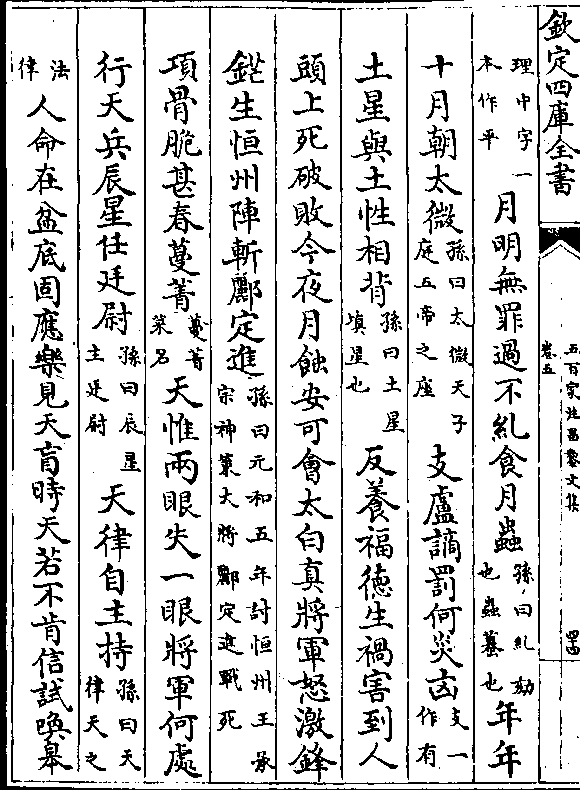 欽定四庫全書
五百家注昌黎文集
卷五
四
理中字一本作平月明無罪過不糺食月蟲孫曰糺劾也蟲蟇也年年
十月朝太微孫曰太微天子庭五帝之座支盧謫罰何災凶支一作有
土星與土性相背孫曰土星填星也反養福德生禍害到人
頭上死破敗今夜月蝕安可會太白真將軍怒激鋒
鋩生恒州陣斬酈定進孫曰元和五年討恒州王承宗神策大將酈定進戰死
項骨脆甚春蔓菁蔓菁菜名天惟兩眼失一眼將軍何處
行天兵辰星任廷尉孫曰辰星主廷尉天律自主持孫曰天律天之
法律人命在盆底固應樂見天盲時天若不肯信試喚皋